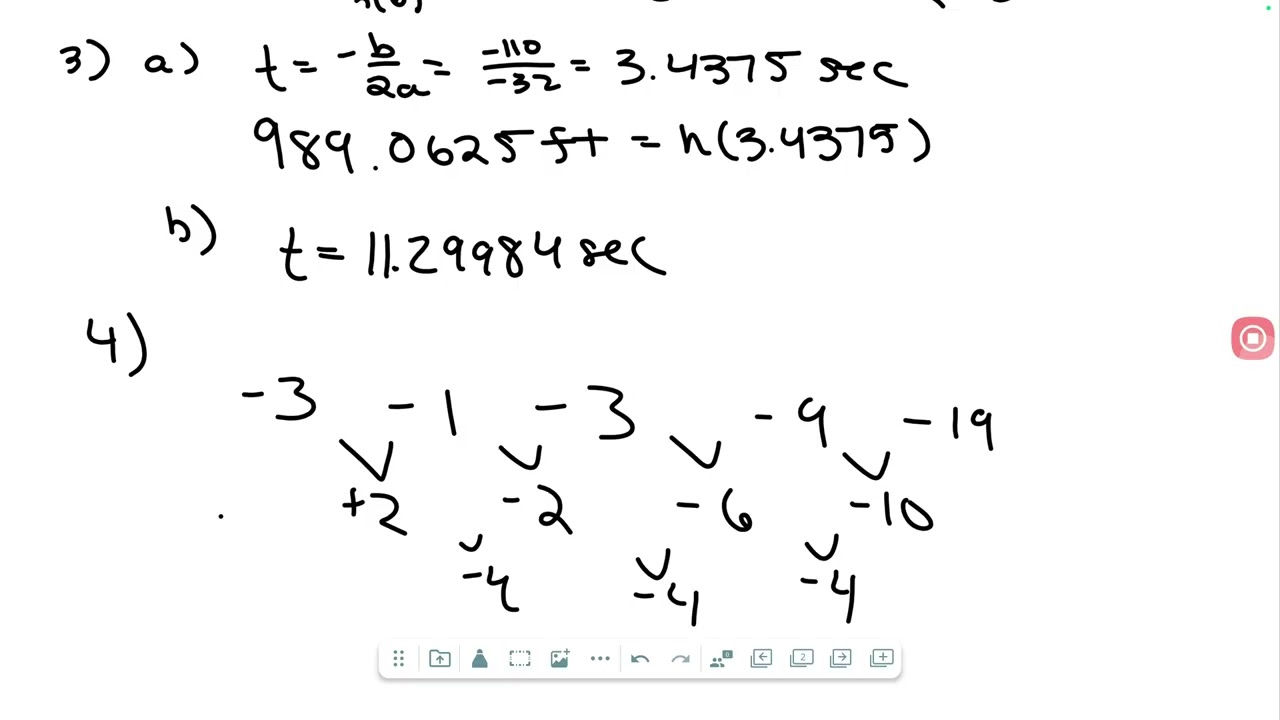 3) a) t = -b/2a = -110/-32 = 3.4375 sec
989.0625 ft = h(3.4375)
b) t = 11.29984 sec
4)
-3 -1 -3 -9 -19
+2 -2 -6 -10
-4 -4 -4
0
2